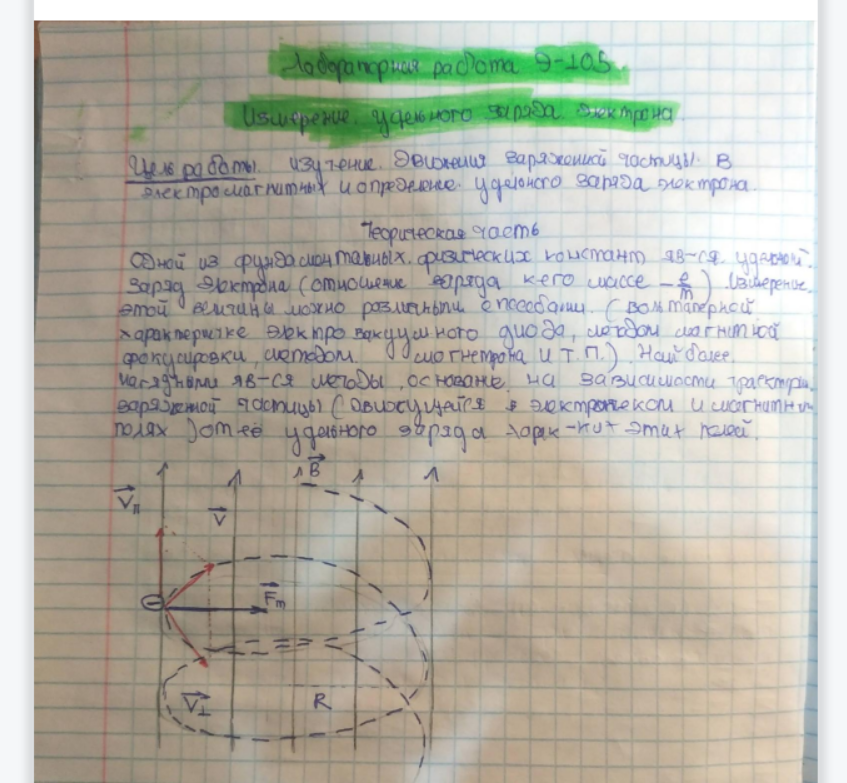 Лабораторная работа Э-105.
Измерение удельного заряда электрона.
Цель работы. изучение движения заряженной частицы в
электромагнитных и определение удельного заряда электрона.
Теорическая часть
Одной из фундаментальных физических констант яв-ся удельной
заряд электрона (отношение заряда к его массе - e/m). Измерение
этой величины можно различными способами. (вольтаперной
характеричке электровакуумного диода, методом магнитной
фокусировки, методом магнетрона и т.п.) Наиболее
наглядными яв-ся методы, основане на зависимости траектри
заряженной частицы (движущейся в электрическом и магнитны
полях) от её удельного заряда харак-ки этих полей.
B
V||
V
Fm
V⊥
R